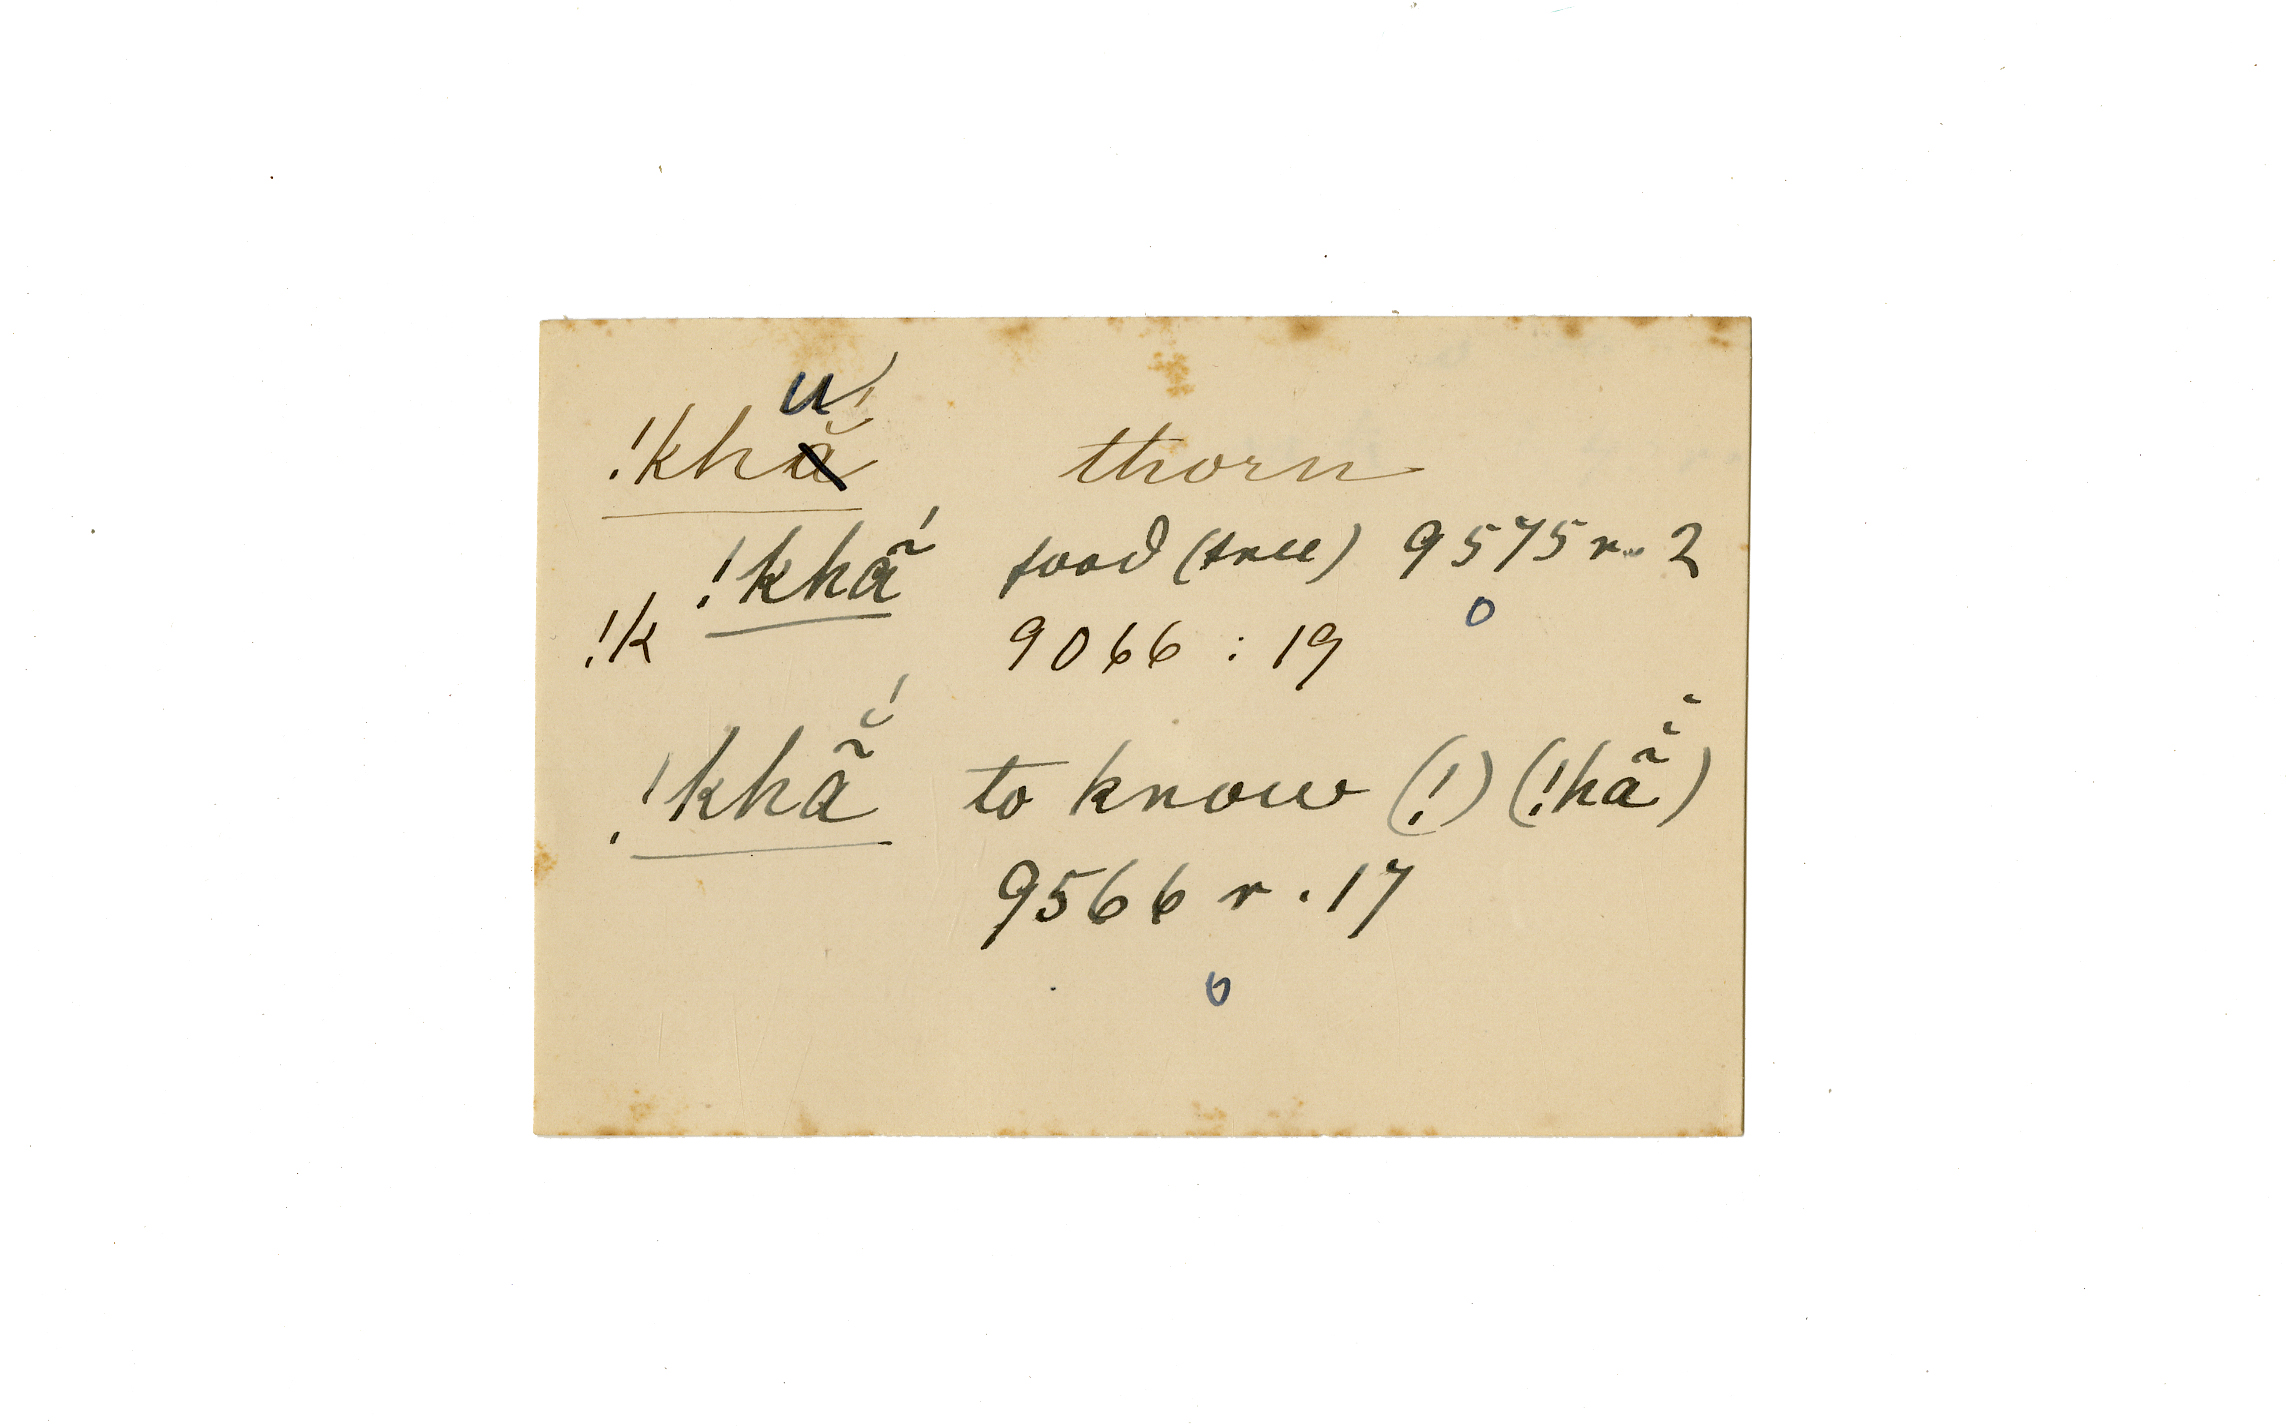 u
!khắ thorn
!khã́ food (tree) 9575 r. 2
!k 9066 : 19 o
!khã̆́ to know (!) (!hã̆̆)
9566 r. 17
o